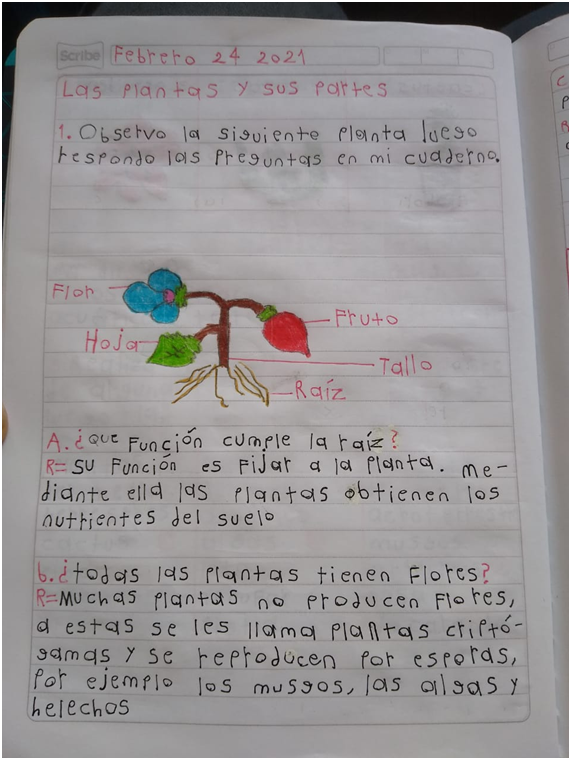 Scribe Febrero 24 2021
Las plantas y sus partes
1. Observo la siguiente planta luego
respondo las preguntas en mi cuaderno.
Flor
Fruto
Hoja
Tallo
Raíz
A. ¿que función cumple la raíz?
R= su función es fijar a la planta. me-
diante ella las plantas obtienen los
nutrientes del suelo
b. ¿todas las plantas tienen flores?
R= Muchas plantas no producen flores,
a estas se les llama plantas criptó-
gamas y se reproducen por esporas,
por ejemplo los musgos, las algas y
helechos